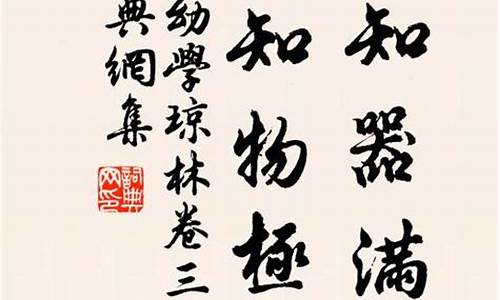 知器滿
知物極
幼學琼林卷三
典網集
詞典